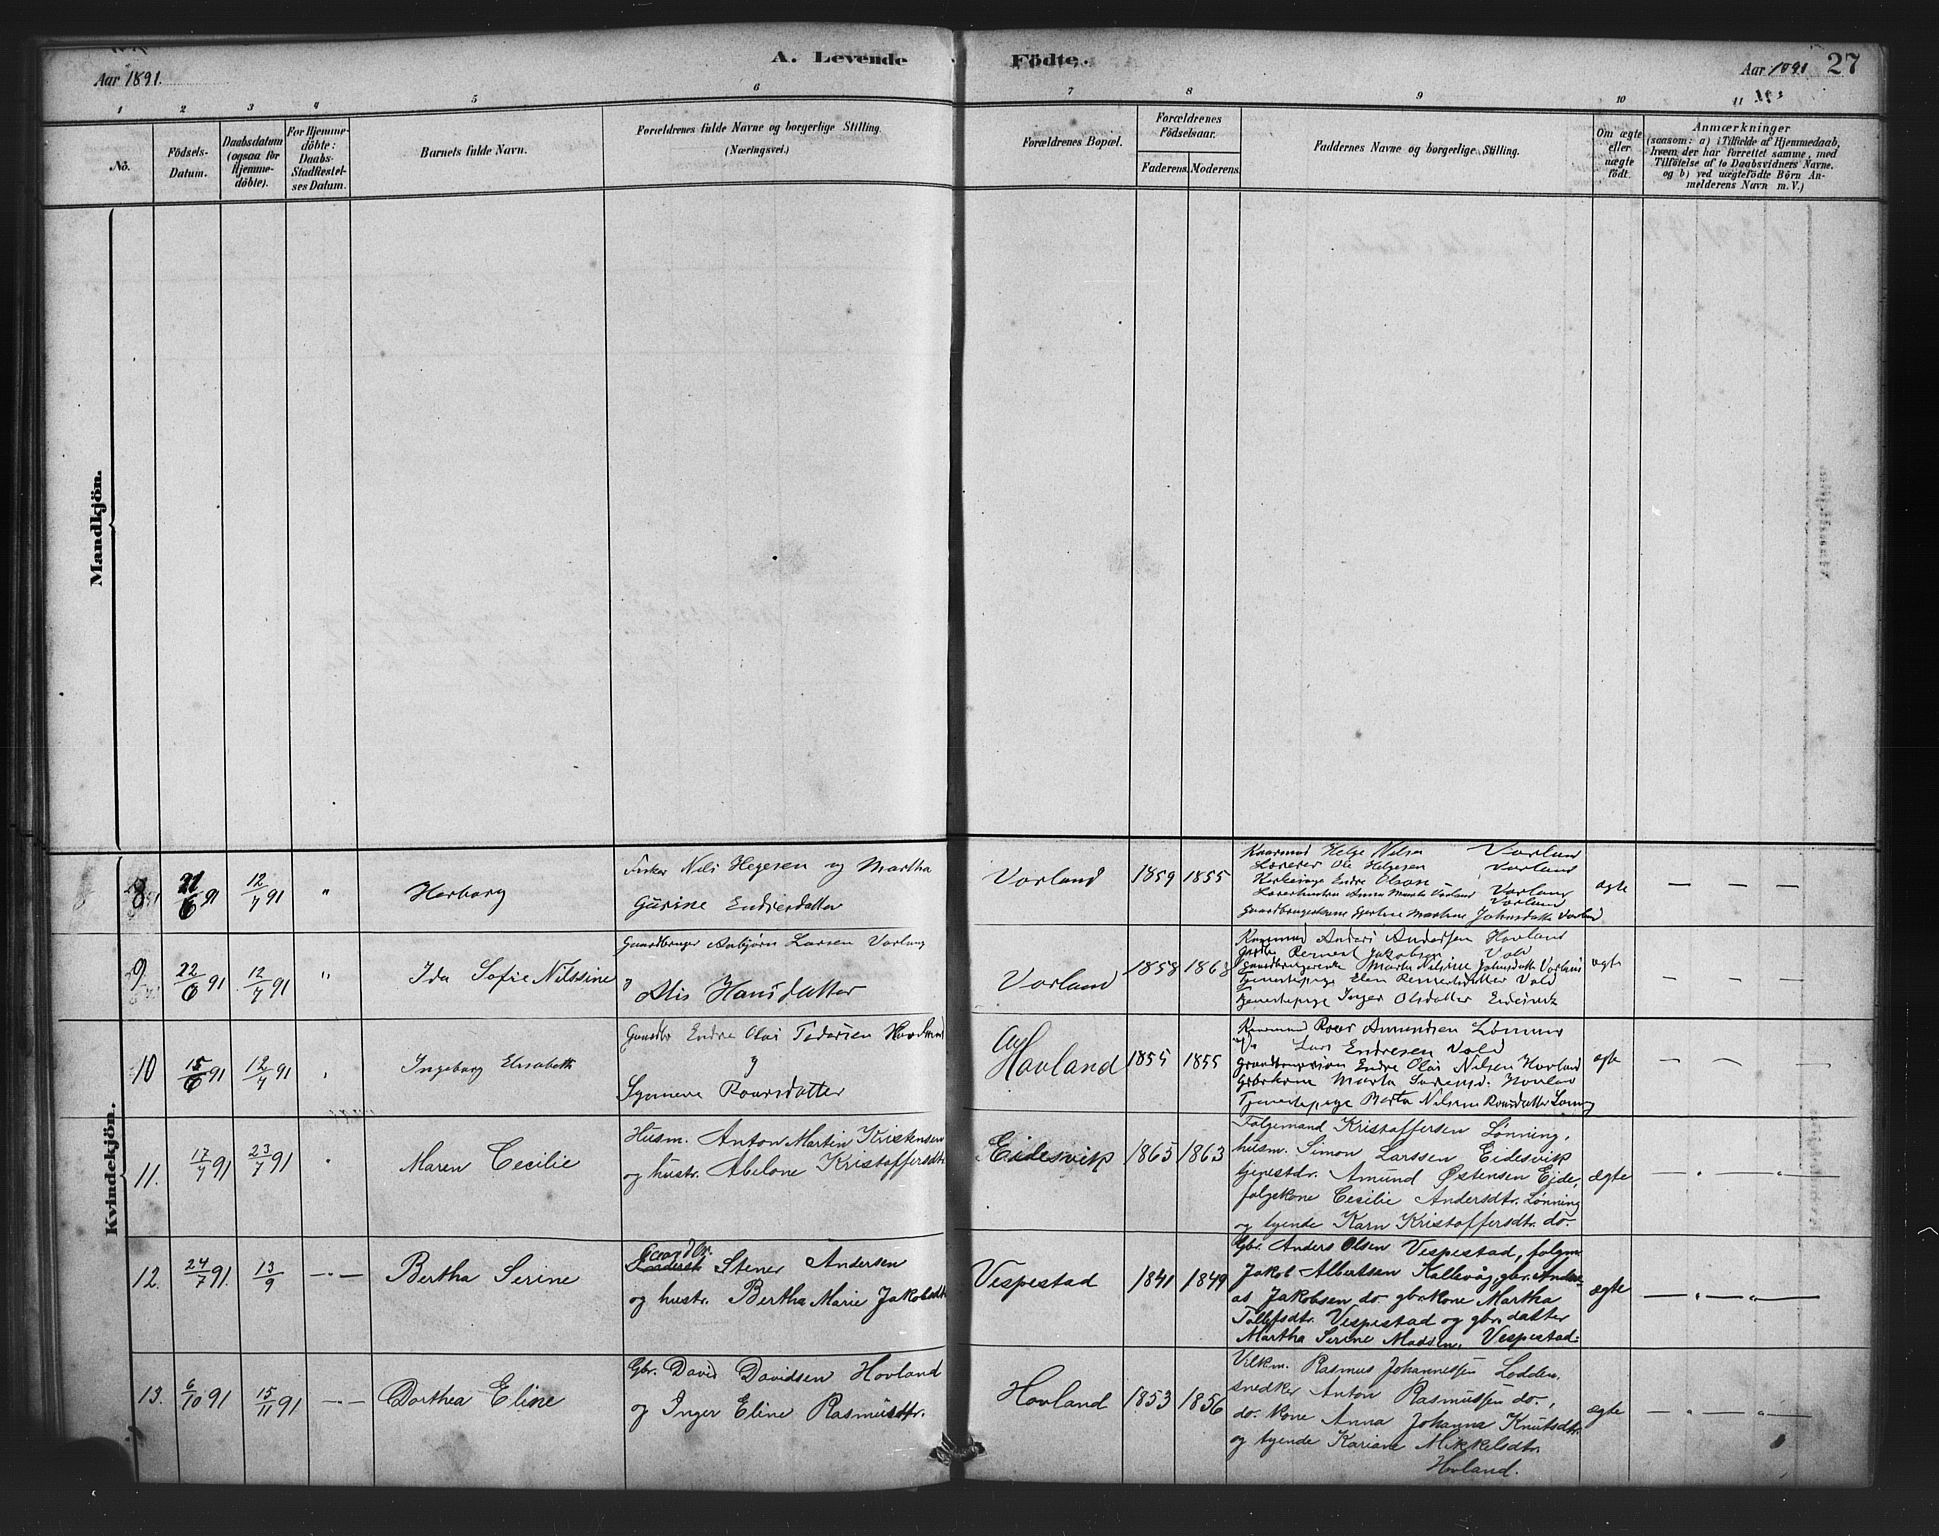 A. Levende Födte.
Aar 1891.
Aar 1891 27
1 2 3 4 5 6 7 8 9 10 11
No.
Födsels-Datum.
Daabsdatum (ogsaa for Hjemme-döbte).
For Hjemme-döbte: Daabs-Stadfæstel-ses Datum.
Barnets fulde Navn.
Forældrenes fulde Navne og borgerlige Stilling. (Næringsvei.)
Forældrenes Bopæl.
Forældrenes Födselsaar.
Faderens. Moderens.
Faddernes Navne og borgerlige Stilling.
Om ægte eller uægte födt.
Anmærkninger
(saasom: a) i Tilfælde af Hjemmedaab,
hvem der har forrettet samme, med
Tilföielse af to Daabsvidners Navne.
og b) ved uægtefödte Börn An-
melderens Navn m. V.)
Mandkjön.
Kvindekjön.
8 21/6 91 12/7 91 " Herborg
Fisker Nils Hegesen og Martha
Gurine Endresdatter
Vorland 1859 1855
Kaarmand Helge Nilsen Vorland
Lærerer Ole Helgesen Vorland
Kirkesanger Endre Olson Vorland
Martha Vorland
Gaardbrugerkone Martine Johnsdatter Vorland
ægte — — —
9 22/6 91 12/7 91 " Ida Sofie Nilssine
Gaardbruger Anbjörn Larsen Vorland
og Alis Hansdatter
Vorland 1858 1863
Kaarmand Anders Andersen Hovland
Jakobsen Vold
Gaardbrugerenke Marta Nilsine Johnsdatter Vorland
Tjenestepige Elen Vold
Tjenestepige Inger Olsdatter Eidesvik
ægte — — —
10 15/6 91 12/7 91 Ingeborg Elisabeth
Gaardbr Endre Olai Tedorsen Hovland
og
Synneve Roarsdatter
Hovland 1855 1855
Kaarmand Roar Amundsen Lønning
Lars Endresen Vold
Endre Olai Nilsen Hovland
Marta Hovland
Tjenestepige Berta Nilsine Roarsdatter Lønning
ægte — — —
11. 17/7 91 23/7 91 " Maren Cecilie
Husm. Anton Martin Kristensen
og hustr. Abelone Kristoffersdtr.
Eidesvig 1865 1863
Folgemand Kristoffersen Lønning,
husm. Simon Larssen Eidesvig
tjenestdr. Amund Østensen Eide,
folgekone Cecilie Andersdtr. Lønning
og tyende Karn Kristoffersdtr. do.
ægte — " — " —
12. 24/7 91. 13/9 — " — Bertha Serine
Gaardbr. Stener Andersen
og hustr. Bertha Marie Jakobsdtr
Vespestad 1841 1849
Gbr. Anders Olsen Vespestad, folgm.
Jakob Albertsen Kallevåg, gbr. Andre-
as Jakobsen do. gbrkone Martha
Tollefsdtr. Vespestad og gbr. datter
Martha Serine Madsen, Vespestad.
ægte — " — " —
13. 6/10 91 15/11 91 — " — Dorthea Eline
Gbr. David Davidsen Hovland
og Inger Eline Rasmusdtr.
Hovland 1853 1856
Vilkm. Rasmus Johannessen Lodden.
snedker Anton Rasmussen do.,
do. kone Anna Johanna Knutsdtr.
og tyende Kariane Mikkelsdtr.
Hovland.
ægte — " — " —